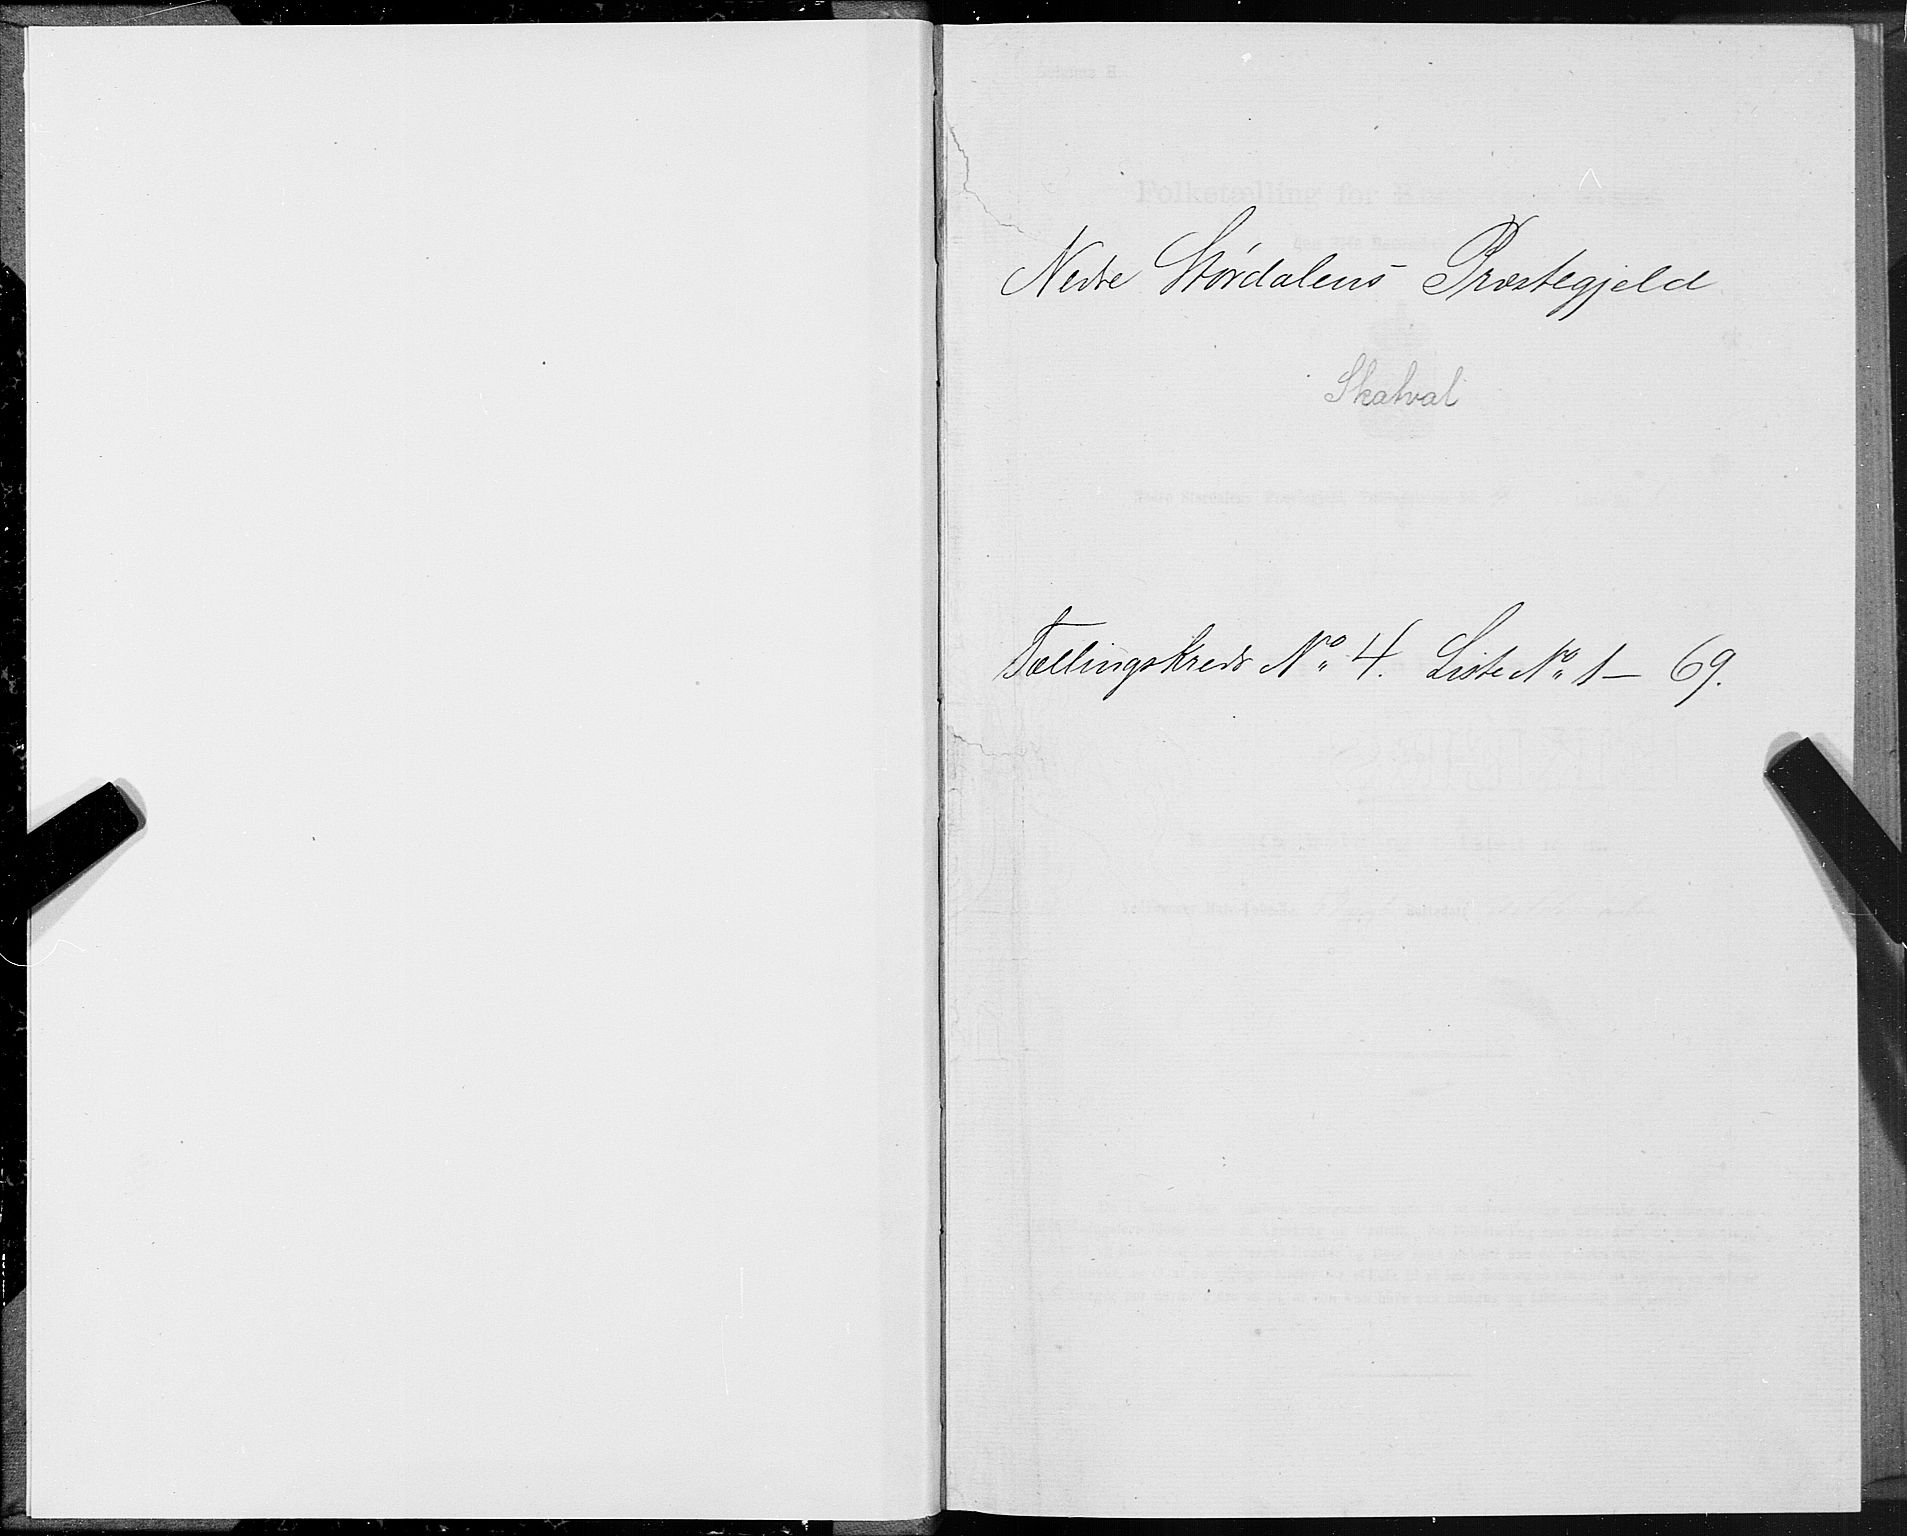 Nedre Størdalens Præstegjeld
Skatval
Tællingskreds No. 4. Liste No. 1 – 69.